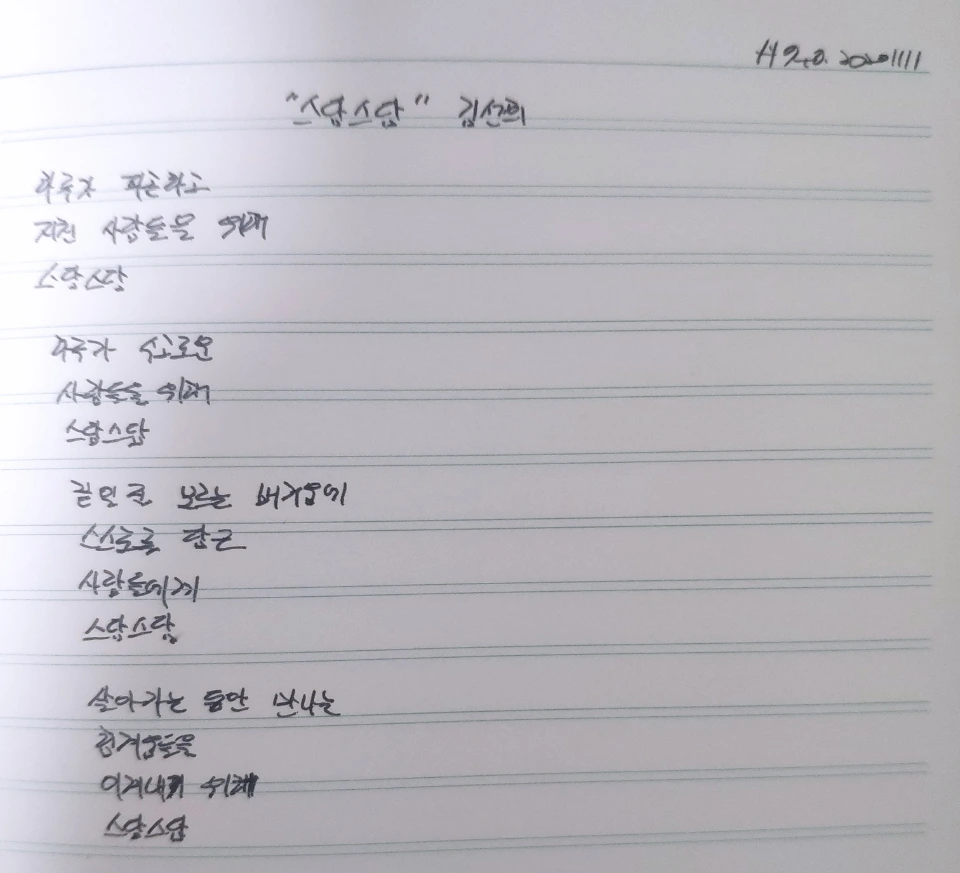 20201111
"스담스담" 김선희
하루가 피곤하고
지친 사람들을 위해
스담스담
하루가 수고로운
사람들을 위해
스담스담
끝인 줄 모르는 버거움에
스스로를 담근
사람들에게
스담스담
살아가는 동안 만나는
힘겨움들을
이겨내기 위해
스담스담